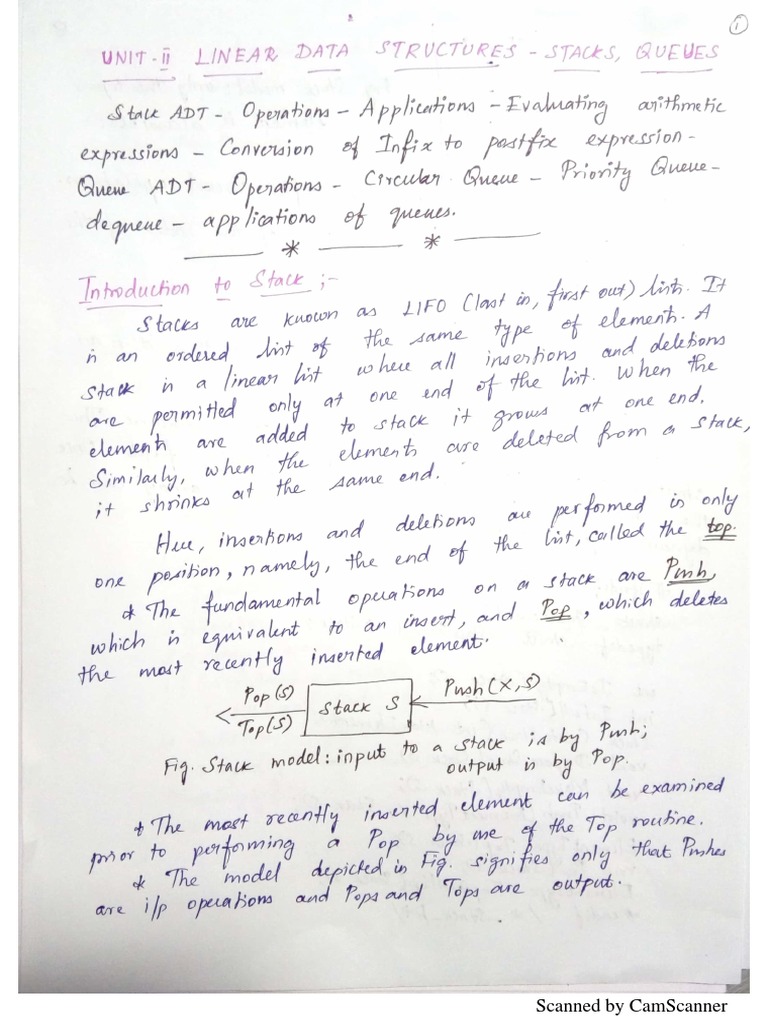 1
UNIT-II LINEAR DATA STRUCTURES - STACKS, QUEUES
Stack ADT - Operations - Applications - Evaluating arithmetic
expressions - Conversion of Infix to postfix expression-
Queue ADT - Operations - Circular Queue - Priority Queue-
dequeue - applications of queues.
Introduction to Stack ;-
Stacks are known as LIFO (last in, first out) lists. It
is an ordered list of the same type of element. A
stack is a linear list where all insertions and deletions
are permitted only at one end of the list. When the
elements are added to stack it grows at one end.
Similarly, when the elements are deleted from a stack,
it shrinks at the same end.
Here, insertions and deletions are performed is only
one position, namely, the end of the list, called the top.
* The fundamental operations on a stack are Push,
which is equivalent to an insert, and Pop, which deletes
the most recently inserted element.
Pop(S)
Top(S)
Stack S
Push(X,S)
Fig. Stack model: input to a stack is by Push;
output is by Pop.
* The most recently inserted element can be examined
prior to performing a Pop by use of the Top routine.
* The model depicted in Fig. signifies only that Pushes
are i/p operations and Pops and Tops are output.
Scanned by CamScanner